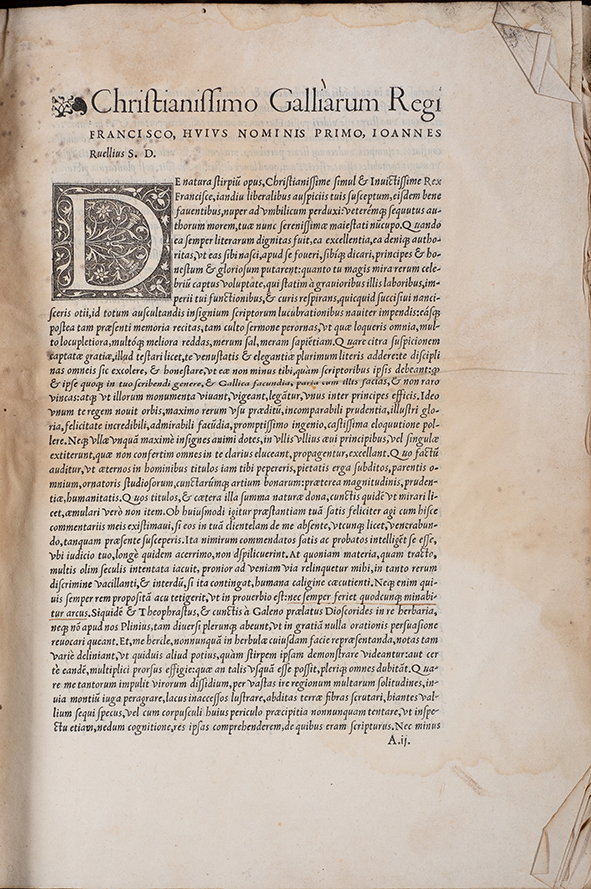 Christianissimo Galliarum Regi
FRANCISCO, HVIVS NOMINIS PRIMO, IOANNES
Ruellius S. D.
DE natura stirpiũ opus, Christianissime simul & Inuictissime Rex
Francisce, iandiu liberalibus auspiciis tuis susceptum, eisdem bene
fauentibus, nuper ad vmbilicum perduxi: veterémq; sequutus au-
thorum morem, tuæ nunc serenissimæ maiestati nũcupo. Quando
ea semper literarum dignitas fuit, ea excellentia, ea deniq; autho-
ritas, vt eas sibi nasci, apud se foueri, sibíq; dicari, principes & ho-
nestum & gloriosum putarent: quanto tu magis mira rerum cele-
briũ captus voluptate, qui statim à grauioribus illis laboribus, im-
perii tui functionibus, & curis respirans, quicquid succisiui nanci-
sceris otii, id totum auscultandis insignium scriptorum lucubrationibus nauiter impendis: eásq;
postea tam præsenti memoria recitas, tam culto sermone perornas, vt quæ loqueris omnia, mul-
to locupletiora, multóq; meliora reddas, merum sal, meram sapiẽtiam. Quare citra suspicionem
captatæ gratiæ, illud testari licet, te venustatis & elegantiæ plurimum literis addere: te discipli
nas omneis sic excolere, & honestare, vt eæ non minus tibi, quàm scriptoribus ipsis debeant: q;
& ipse quoq; in tuo scribendi genere, & Gallica facundia, paria cum illis facias, & non raro
vincas: atq; vt illorum monumenta viuant, vigeant, legãtur, vnus inter principes efficis. Ideo
vnum te regem nouit orbis, maximo rerum vsu præditũ, incomparabili prudentia, illustri glo-
ria, felicitate incredibili, admirabili facũdia, promptissimo ingenio, castissima eloquutione pol-
lere. Neq; vllæ vnquã maximè insignes animi dotes, in vllis vllius æui principibus, vel singulæ
extiterunt, quæ non confertim omnes in te clarius eluceant, propagentur, excellant. Quo factũ
auditur, vt æternos in hominibus titulos iam tibi pepereris, pietatis erga subditos, parentis o-
mnium, ornatoris studiosorum, cunctarúmq; artium bonarum: præterea magnitudinis, pruden-
tiæ, humanitatis. Quos titulos, & cætera illa summa naturæ dona, cunctis quidẽ vt mirari li-
cet, æmulari verò non item. Ob huiusmodi igitur præstantiam tuã satis feliciter agi cum hisce
commentariis meis existimaui, si eos in tuã clientelam de me absente, vtcunq; licet, venerabun-
do, tanquam præsente susceperis. Ita nimirum commendatos satis ac probatos intelligẽt se esse,
vbi iudicio tuo, longè quidem acerrimo, non displicuerint. At quoniam materia, quam tracto,
multis olim seculis intentata iacuit, pronior ad veniam via relinquetur mihi, in tanto rerum
discrimine vacillanti, & interdũ, si ita contingat, humana caligine cæcutienti. Neq; enim qui-
uis semper rem propositã acu tetigerit, vt in prouerbio est: nec semper feriet quodcunq; minabi-
tur arcus. Siquidẽ & Theophrastus, & cunctis à Galeno prælatus Dioscorides in re herbaria,
neq; nõ apud nos Plinius, tam diuersi plerunq; abeunt, vt in gratiã nulla orationis persuasione
reuocari queant. Et, me hercle, nonnunquã in herbulæ cuiusdam facie repræsentanda, notas tam
variè deliniant, vt quiduis aliud potius, quàm stirpem ipsam demonstrare videantur: aut cer
tè eandẽ, multiplici prorsus effigie: quæ an talis vsquã esse possit, pleriq; omnes dubitãt. Qua-
re me tantorum impulit virorum dissidium, per vastas ire regionum multarum solitudines, in-
uia montiũ iuga peragrare, lacus inaccessos lustrare, abditas terræ fibras scrutari, hiantes val-
lium sequi specus, vel cum corpusculi huius periculo præcipitia nonnunquam tentare, vt inspe-
ctu etiam, nedum cognitione, res ipsas comprehenderem, de quibus eram scripturus. Nec minus
A.ij.